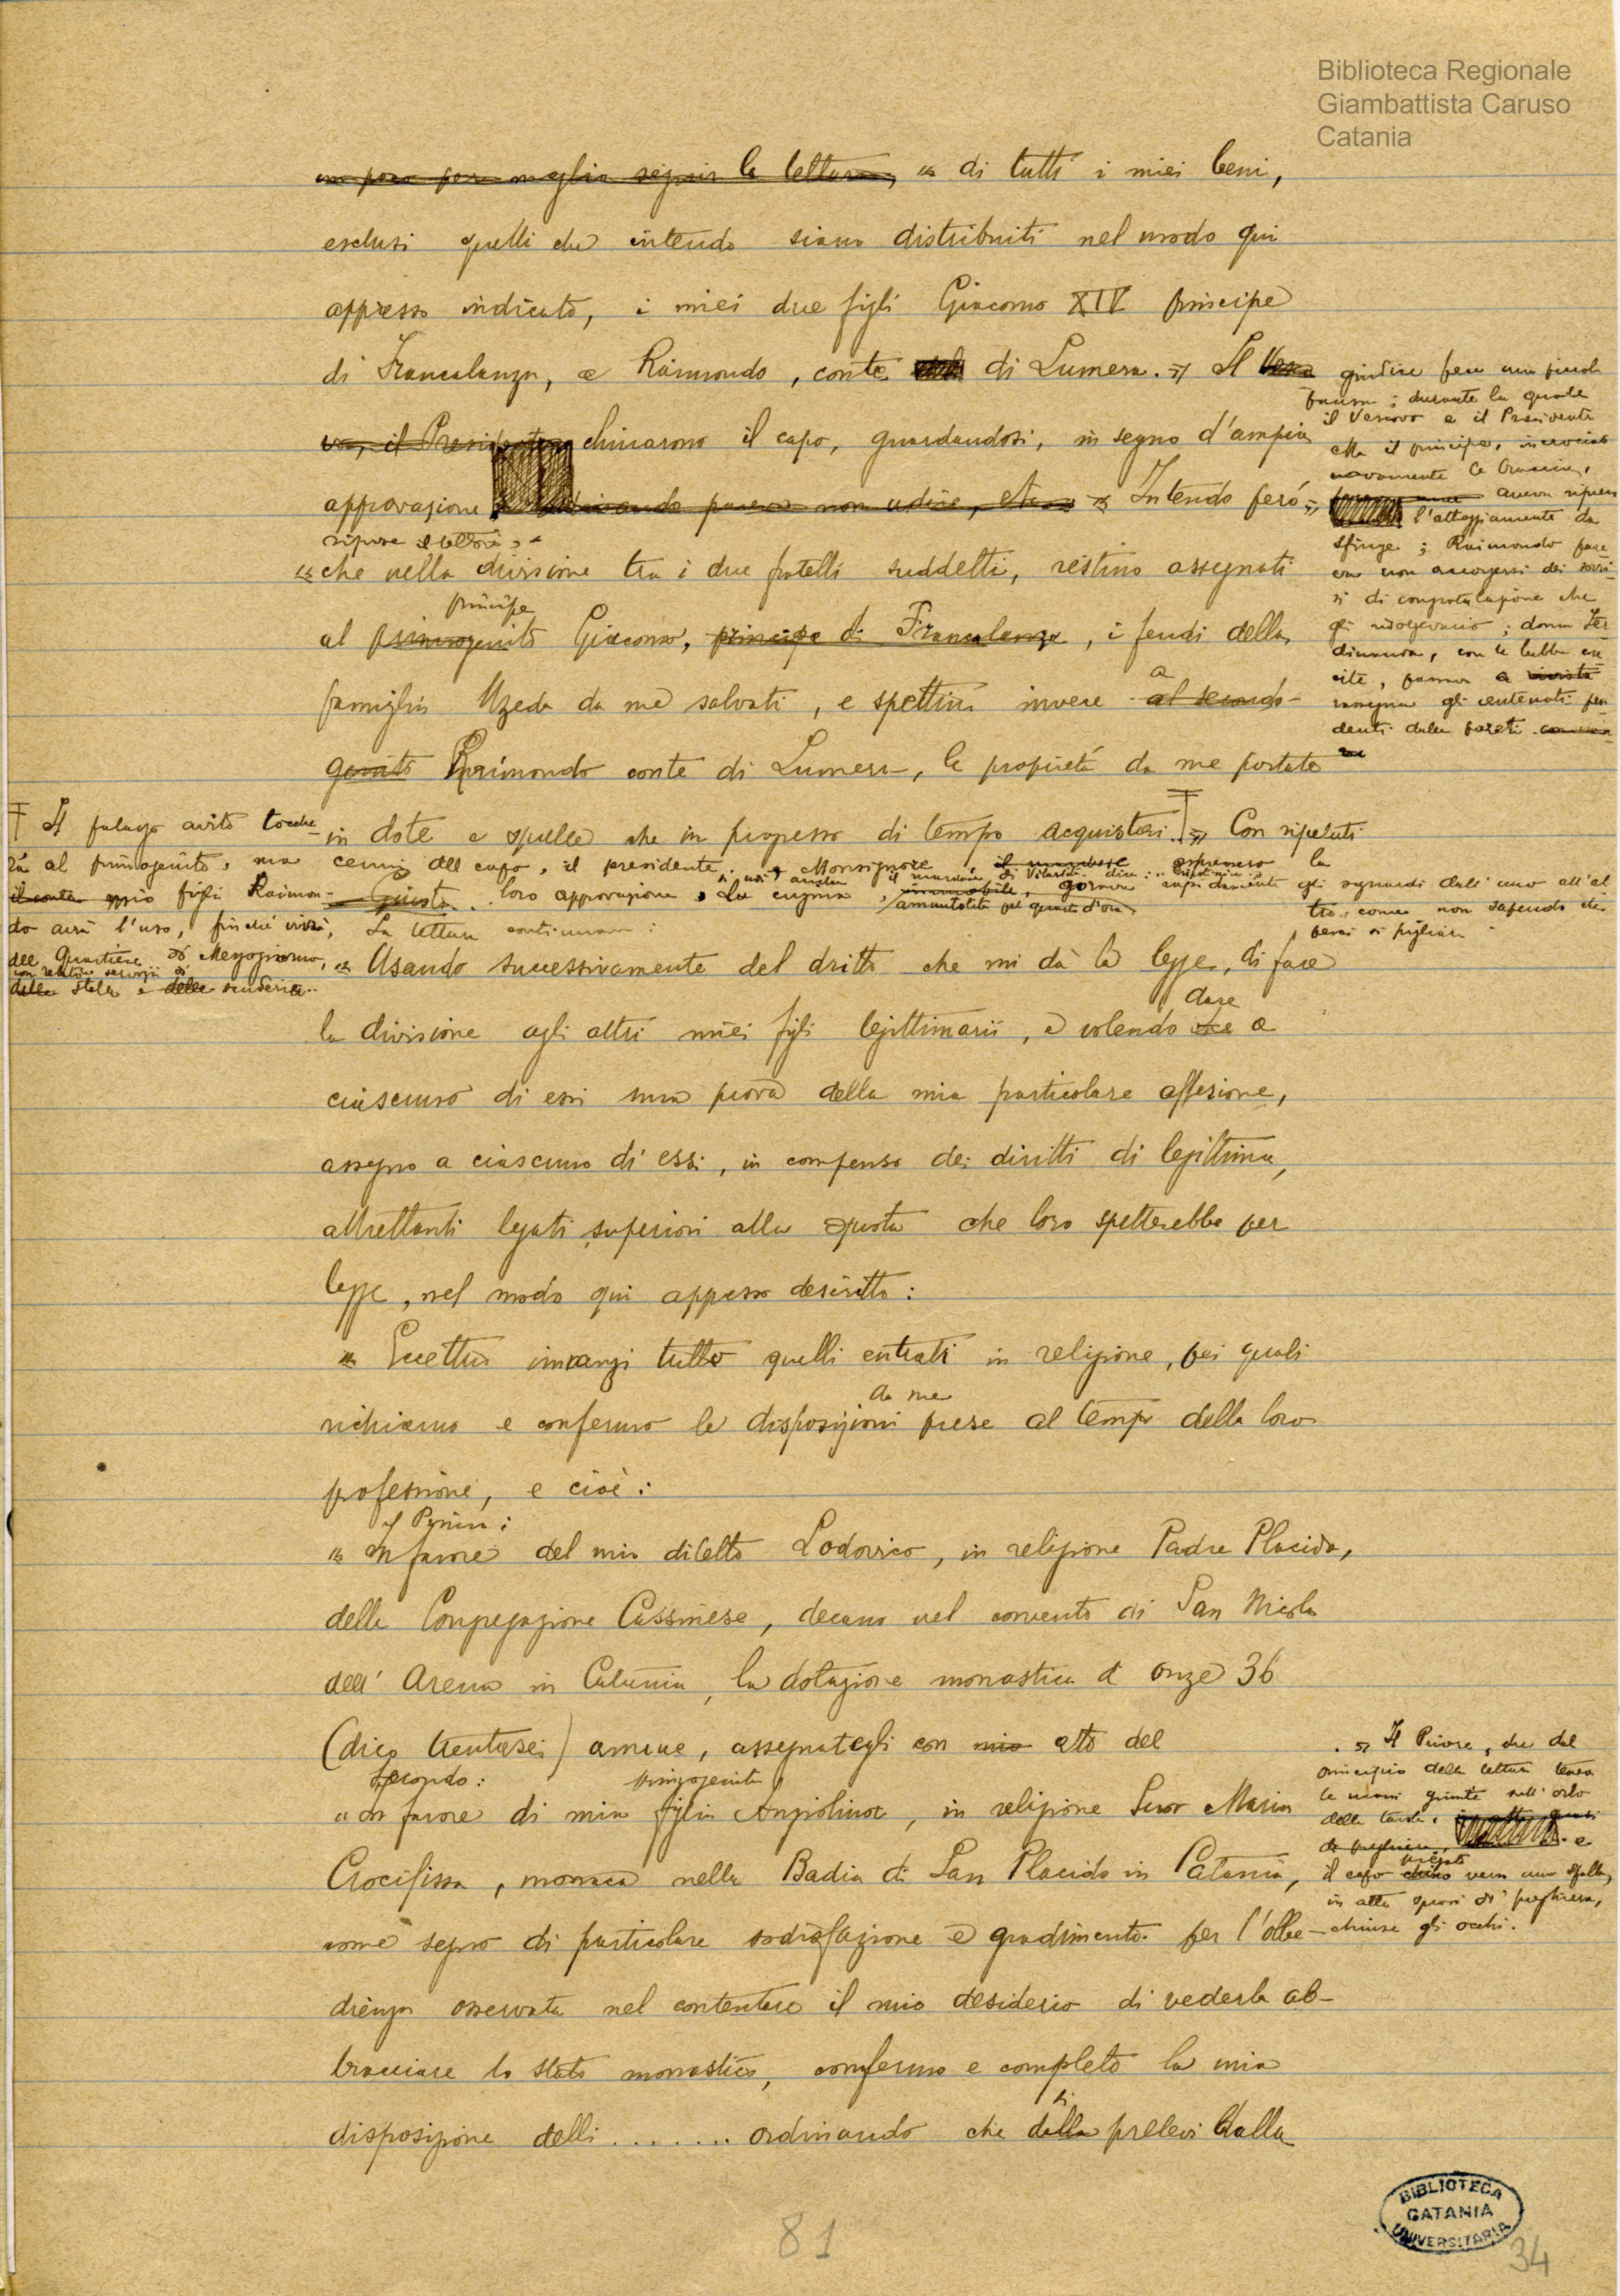 Biblioteca Regionale
Giambattista Caruso
Catania
un poco per meglio seguir la lettura, « di tutti i miei beni,
esclusi quelli che intendo siano distribuiti nel modo qui
appresso indicato, i miei due figli Giacomo XIV principe
di Francalanza, e Raimondo, conte di Lumera. » Il
va, il Presidente chinarono il capo, guardandosi, in segno d'ampia
approvazione parve non udire, « Intendo però »,
riprese il lettore, «
« che nella divisione tra i due fratelli suddetti, restino assegnati
principe
al primogenito Giacomo, principe di Francalanza, i feudi della
famiglia Uzeda da me salvati, e spettino invece al secondo-
a
genito Raimondo conte di Lumera, le proprietà da me portate
in dote e quelle che in progresso di tempo acquistai. » Con ripetuti
cenni del capo, il presidente, Monsignore, espressero la
loro approvazione. La cugina, immobile, girava rapidamente gli sguardi dall'uno all'al
ammutolita per quanto d'ora
tro, come non sapendo che
pesci si pigliare
Questa
La lettura continuava:
« Usando successivamente del dritto che mi dà la legge, di fare
dare
la divisione agli altri miei figli legittimarii, e volendo che a
ciascuno di essi una prova della mia particolare affezione,
assegno a ciascuno di essi, in compenso dei diritti di legittima,
altrettanti legati superiori alla quota che loro spetterebbe per
legge, nel modo qui appresso descritto:
« Eccettuo innanzi tutto quelli entrati in religione, pei quali
da me
richiamo e confermo le disposizioni prese al tempo della loro
professione, e cioè:
« Primo:
« In favore del mio diletto Lodovico, in religione Padre Placido,
della Congregazione Cassinese, decano nel convento di San Nicola
dell'Arena in Catania, la dotazione monastica di onze 36
(dico trentasei) annue, assegnategli con mio atto del
Secondo: primogenita
« In favore di mia figlia Angiolina, in religione Suor Maria
Crocifissa, monaca nella Badia di San Placido in Catania,
come segno di particolare sodisfazione e gradimento per l'obbe-
dienza osservata nel contentare il mio desiderio di vederla ab-
bracciare lo stato monastico, confermo e completo la mia
si
disposizione delli ........ ordinando che dalla prelevi dalla
giudice fece una piccola
pausa; durante la quale
il Vescovo e il Presidente
Ma il principe, incrociate
novamente le braccia,
aveva ripreso
l'atteggiamento da
sfinge; Raimondo pare
va non accorgersi dei sorri-
si di congratulazione che
gli rivolgevano; donna Fer
dinanda, con le labbra cu
cite, passava a rivista
rassegna gli antenati pen
denti dalle pareti
Il palazzo avito tocche-
rà al primogenito, ma
il conte mio figlio Raimon-
do avrà l'uso, finchè vivrà,
del Quartiere di Mezzogiorno,
con relativi servizi di
della stalla e delle scuderia..
. » Il Priore, che dal
principio della lettura teneva
le mani giunte sull'orlo
della tavola,
di preghiera, e
piegato
il capo chino verso una spalla,
in atto quasi di preghiera,
chiuse gli occhi.
81
BIBLIOTECA
CATANIA
UNIVERSITARIA
34